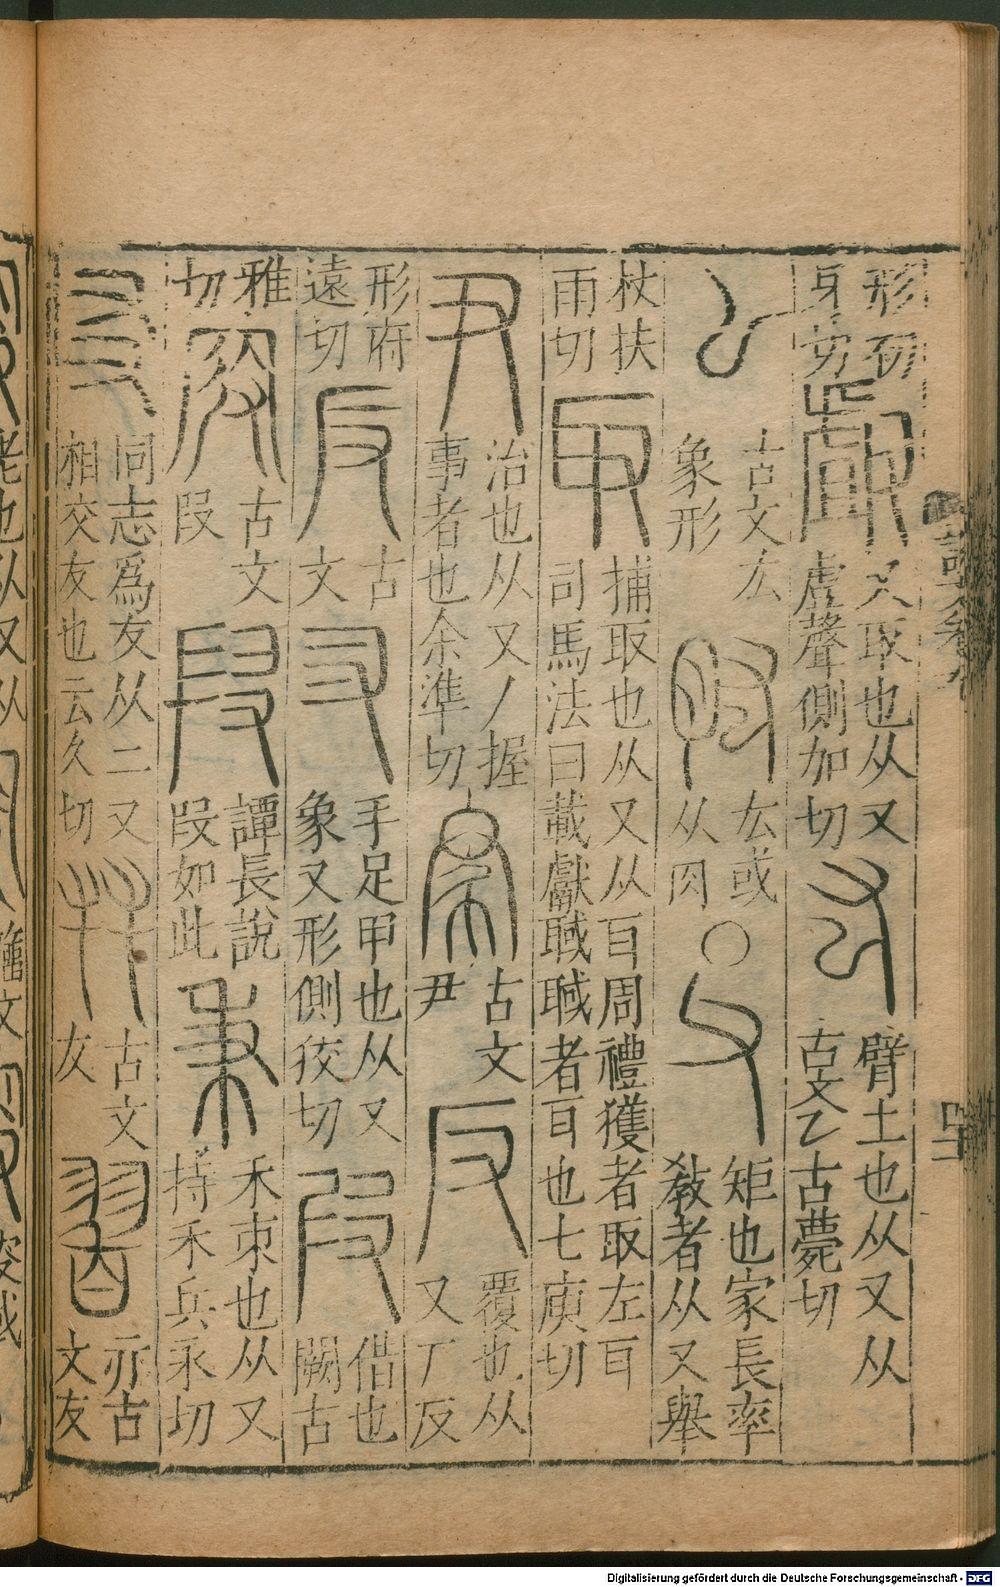 形刃
身切
𠭯
又取也从又
虘聲側加切
厷
臂上也从又从
古文乙古薨切
𠃋
古文厷
象形
肱
厷或
从肉
○
父
矩也家長率
教者从又舉
杖扶
雨切
取
捕取也从又从耳周禮獲者取左耳
司馬法曰載獻聝聝者耳也七庾切
尹
治也从又丿握
事者也余準切
古文
尹
反
覆也从
又厂反
形府
遠切
反
古
文
叉
手足甲也从又
象叉形側狡切
叚
借也
闕古
雅
切
古文
叚
段
譚長說
叚如此
秉
禾束也从又
持禾兵永切
友
同志爲友从二又
相交友也云久切
古文
友
亦古
文友
說文
Digitalisierung gefördert durch die Deutsche Forschungsgemeinschaft - DFG